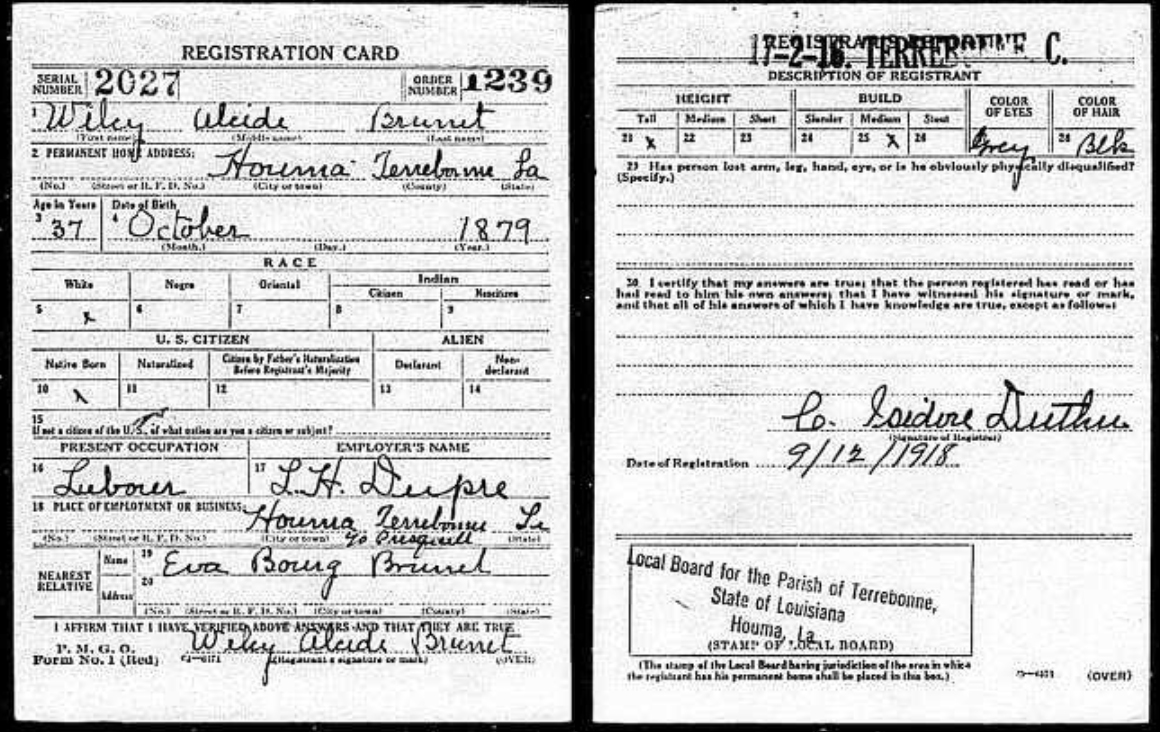 REGISTRATION CARD
SERIAL NUMBER 2027 ORDER NUMBER 1239
1 Wiley Alcide Brunet
(First name) (Middle name) (Last name)
2 PERMANENT HOME ADDRESS:
Houma Terrebonne La
(No.) (Street or R. F. D. No.) (City or town) (County) (State)
Age in Years Date of Birth
3 37 4 October 1879
(Month.) (Day.) (Year.)
RACE
White Negro Oriental Indian
Citizen Noncitizen
5 x 6 7 8 9
U. S. CITIZEN ALIEN
Native Born Naturalized Citizen by Father's Naturalization Before Registrant's Majority Declarant Non-declarant
10 x 11 12 13 14
15
If not a citizen of the U. S., of what nation are you a citizen or subject?
PRESENT OCCUPATION EMPLOYER'S NAME
16 Laborer 17 L. H. Dupre
18 PLACE OF EMPLOYMENT OR BUSINESS:
Houma Terrebonne La
(No.) (Street or R. F. D. No.) (City or town) (State)
NEAREST RELATIVE
Name 19 Eva Bourg Brunet
Address 20
(No.) (Street or R. F. D. No.) (City or town) (County) (State)
I AFFIRM THAT I HAVE VERIFIED ABOVE ANSWERS AND THAT THEY ARE TRUE
P. M. G. O.
Form No. 1 (Red)
Wiley Alcide Brunet
(Registrant's signature or mark) (OVER)
REGISTRAR'S REPORT
17-2-16. TERREBONNE C.
DESCRIPTION OF REGISTRANT
HEIGHT BUILD COLOR OF EYES COLOR OF HAIR
Tall Medium Short Slender Medium Stout
21 x 22 23 24 25 x 26 Grey 28 Blk
29 Has person lost arm, leg, hand, eye, or is he obviously physically disqualified?
(Specify.)
30 I certify that my answers are true; that the person registered has read or has
had read to him his own answers; that I have witnessed his signature or mark,
and that all of his answers of which I have knowledge are true, except as follows:
Isidore
(Signature of Registrar)
Date of Registration 9/12/1918
Local Board for the Parish of Terrebonne,
State of Louisiana
Houma, La
(STAMP OF LOCAL BOARD)
(The stamp of the Local Board having jurisdiction of the area in which
the registrant has his permanent home shall be placed in this box.)
(OVER)